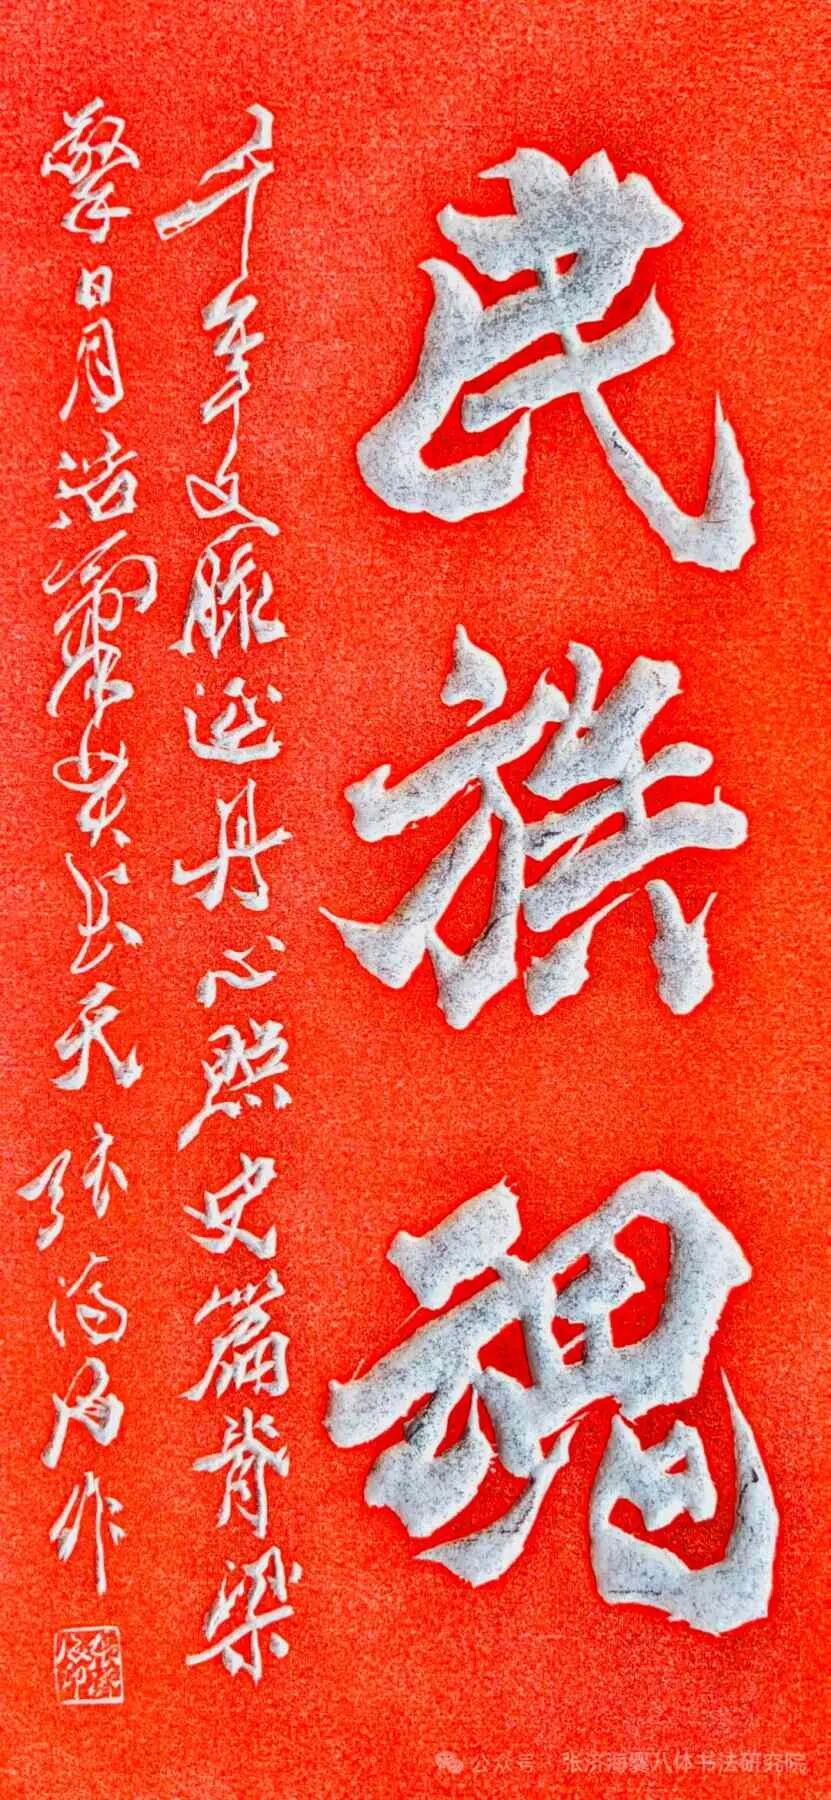 民族魂
千年文脈延丹心照史篇脊梁
擎日月浩氣共长天 张济海作
公众号 · 张济海八体书法研究院